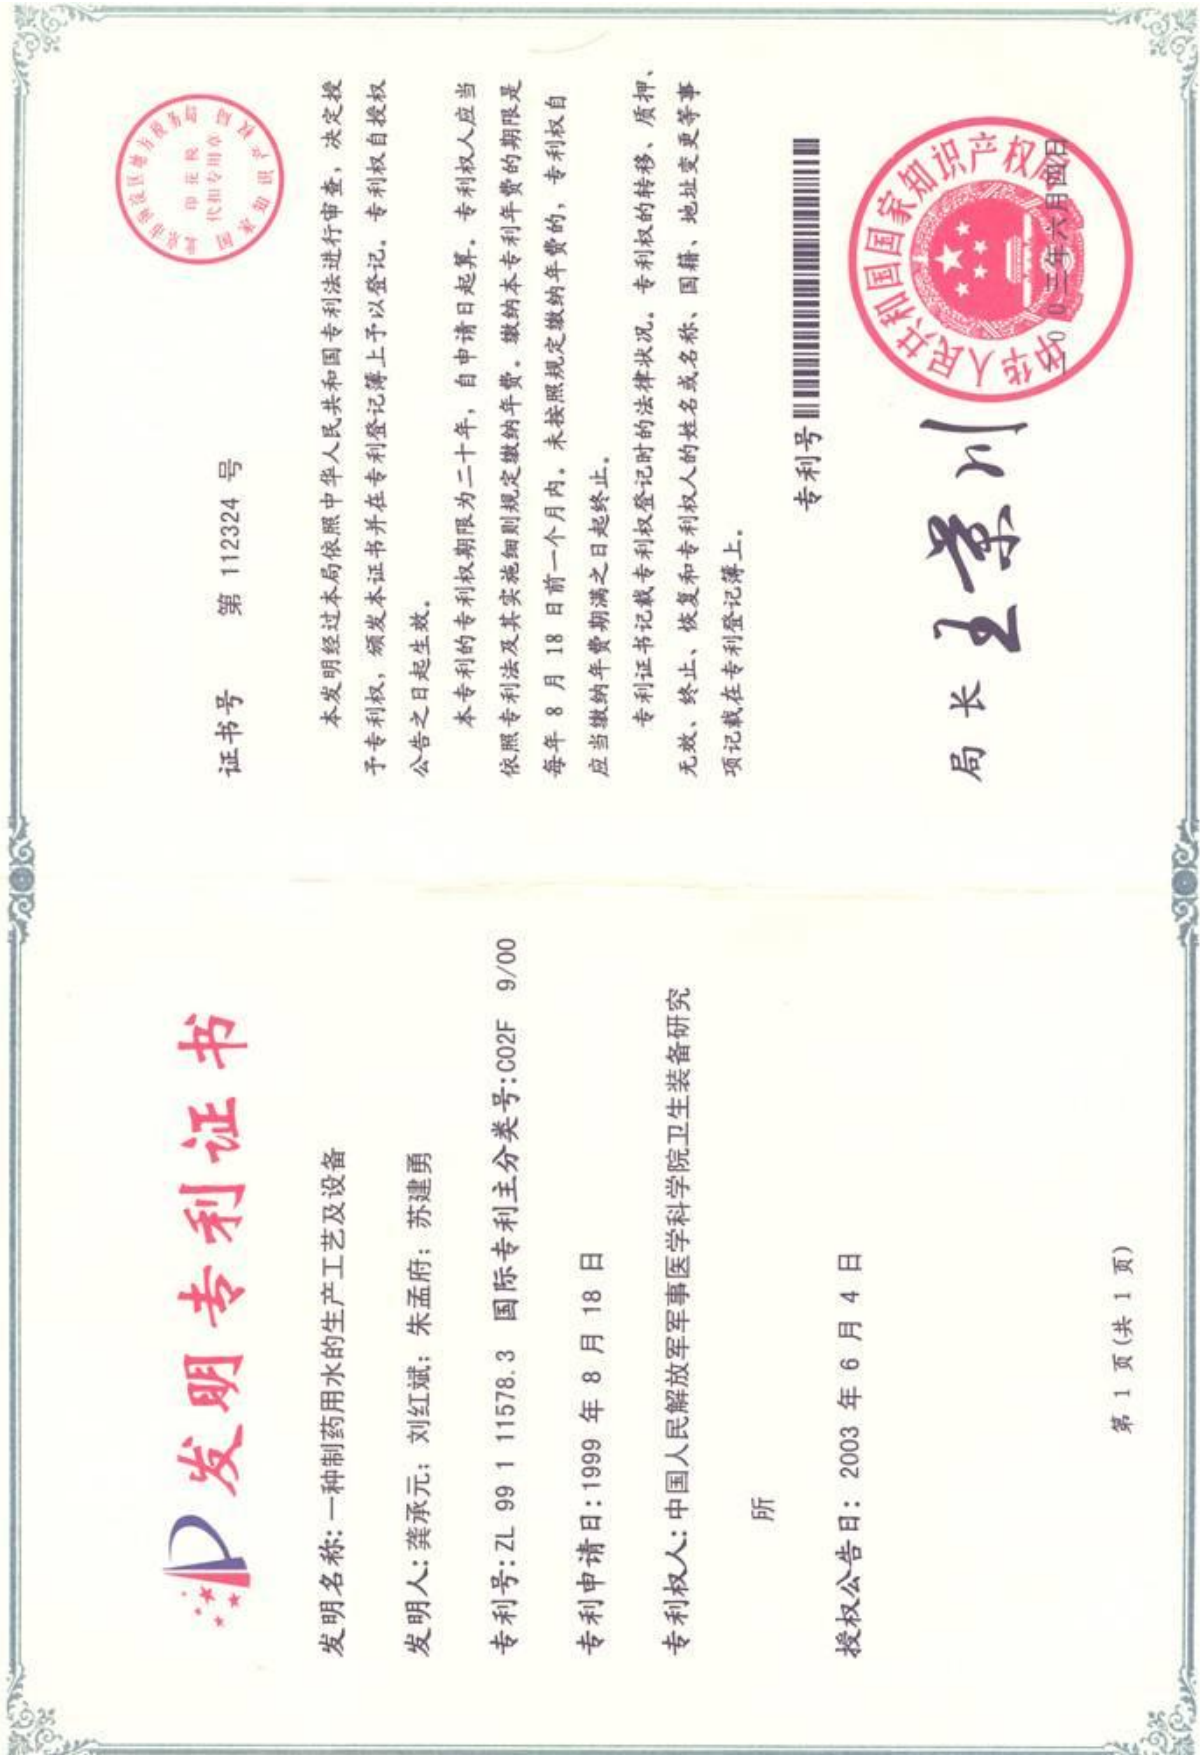 发明专利证书
发明名称:一种制药用水的生产工艺及设备
发明人:龚承元;刘红斌;朱孟府;苏建勇
专利号:ZL 99 1 11578.3 国际专利主分类号:C02F 9/00
专利申请日:1999 年 8 月 18 日
专利权人:中国人民解放军军事医学科学院卫生装备研究
所
授权公告日: 2003 年 6 月 4 日
第 1 页(共 1 页)
证书号 第 112324 号
北京市海淀区地方税务局
印花税
代扣专用章
国家知识产权局
本发明经过本局依照中华人民共和国专利法进行审查,决定授
予专利权,颁发本证书并在专利登记簿上予以登记。专利权自授权
公告之日起生效。
本专利的专利权期限为二十年,自申请日起算。专利权人应当
依照专利法及其实施细则规定缴纳年费。缴纳本专利年费的期限是
每年 8 月 18 日前一个月内。未按照规定缴纳年费的,专利权自
应当缴纳年费期满之日起终止。
专利证书记载专利权登记时的法律状况。专利权的转移、质押、
无效、终止、恢复和专利权人的姓名或名称、国籍、地址变更等事
项记载在专利登记簿上。
专利号
局长 王景川
中华人民共和国国家知识产权局
二〇〇三年六月四日